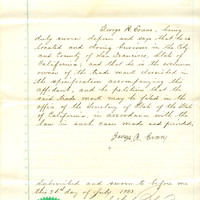 George R. Evans, being
duly sworn deposes and says that he is
located and doing business in the City
and County of San Francisco, State of
California, and that he is the
owner of the trade mark described in
the specification accompanying this
affidavit, and he petitions that the
said trade mark may be filed in the
office of the Secretary of State of the State
of California, in accordance with the
law in such case made and provided,
George R. Evans
Subscribed and sworn to before me
this 21st day of July 1883.